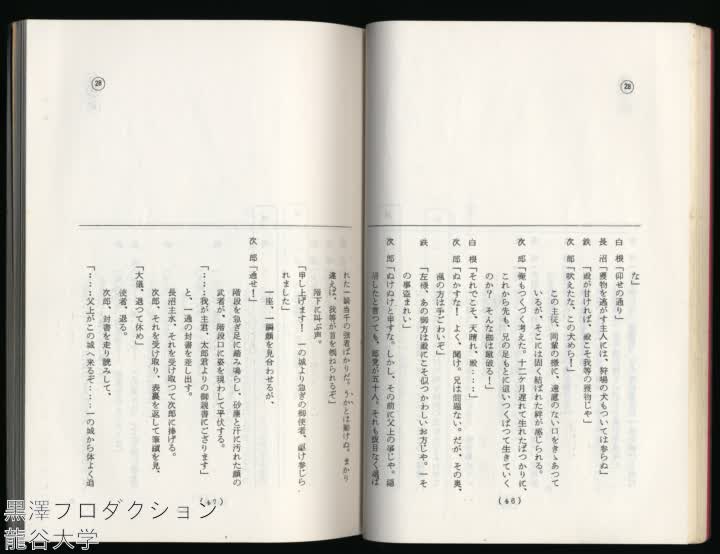 28
な」
白根「仰せの通り」
長沼「獲物を逃がす主人には、狩場の犬もついては参らぬ」
鉄「殿が甘ければ、殿こそ我等の獲物じや」
次郎「吠えたな、この犬めら!」
この主従、同輩の様に、遠慮のない口をきゝあつて
いるが、そこには固く結ばれた絆が感じられる。
次郎「俺もつくづく考えた。十二ケ月遅れて生れたばつかりに、
これから先も、兄の足もとに這いつくばつて生きていく
のか? そんな枷は蹴破る!」
白根「それでこそ、天晴れ、殿‥‥」
次郎「ぬかすな! よく、聞け。兄は問題ない。だが、その奥、
楓の方は手ごわいぞ」
鉄「左様、あの御方は殿にこそ似つかわしいお方じや。一そ
の事盗まれい」
次郎「ぬけぬけと申すな。しかし、その前に父上の事じや。隠
居したと言つても、郎党が五十人。それも抜目なく選ば
(46)
28
れた一騎当千の強者ばかりだ。うかとは動けぬ。まかり
違えば、我等が首を刎ねられるぞ」
階下に叫ぶ声。
「申し上げます! 一の城より急ぎの御使者、駆け参じら
れました」
一座、一瞬顔を見合わせるが、
次郎「通せ!」
階段を急ぎ足に踏み鳴らし、砂塵と汗に汚れた顔の
武者が、階段口に姿を現わして平伏する。
「‥‥我が主君、太郎君よりの御親書にござります」
と、一通の封書を差し出す。
長沼主水、それを受け取つて次郎に捧げる。
次郎、それを受け取り、表裏を返して筆蹟を見、
「大儀、退つて休め」
使者、退る。
次郎、封書を走り読みして、
「‥‥父上がこの城へ来るぞ‥‥一の城から体よく追
(47)
黒澤プロダクション
龍谷大学